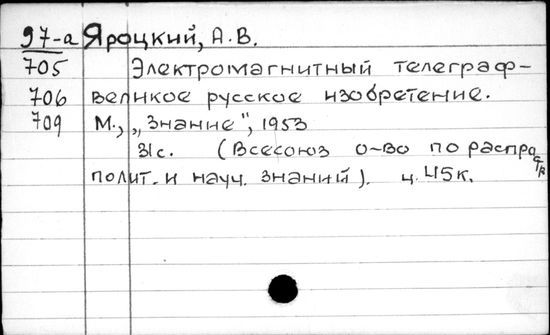 97-а Яроцкий, А.В.
705 Электромагнитный телеграф-
706 великое русское изобретение.
709 М., „Знание", 1953
31с. (Всесоюз о-во по распростр
полит. и науч. знаний). ц. 45к.